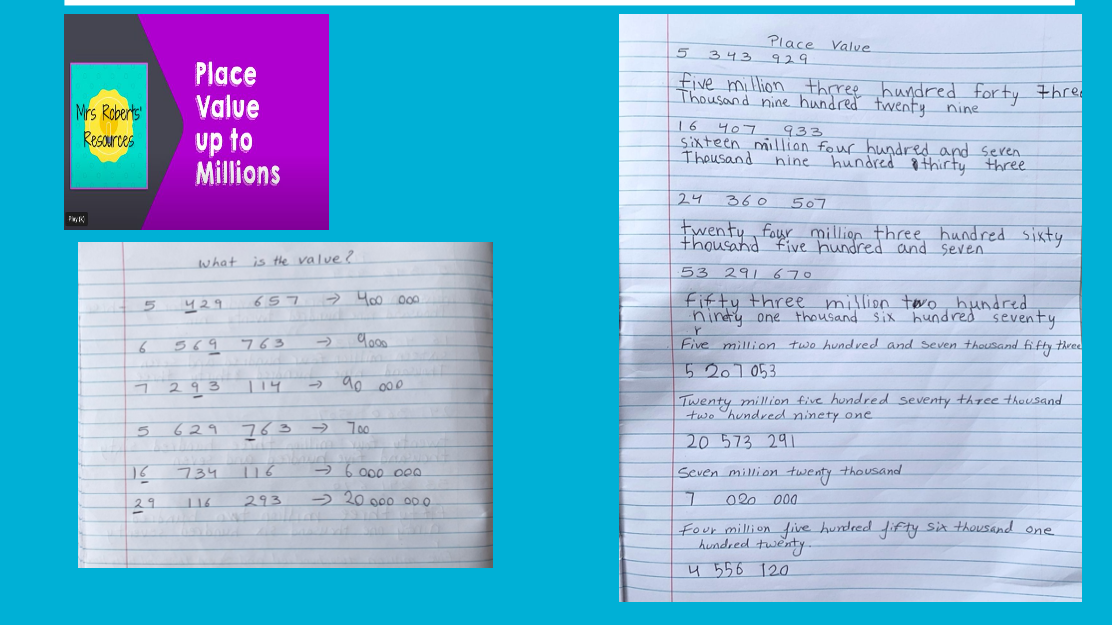 Place
Value
up to
Millions
Mrs Roberts'
Resources
Play (k)
What is the value?
5 429 657 → 400 000
6 569 763 → 9000
7 293 114 → 90 000
5 629 763 → 700
16 734 116 → 6 000 000
29 116 293 → 20 000 000
Place Value
5 343 929
five million thrree hundred forty three
Thousand nine hundred twenty nine
16 407 933
sixteen million four hundred and seven
Thousand nine hundred thirty three
24 360 507
twenty four million three hundred sixty
thousand five hundred and seven
53 291 670
fifty three million two hundred
ninety one thousand six hundred seventy
r
Five million two hundred and seven thousand fifty three
5 207 053
Twenty million five hundred seventy three thousand
two hundred ninety one
20 573 291
Seven million twenty thousand
7 020 000
Four million five hundred fifty six thousand one
hundred twenty.
4 556 120